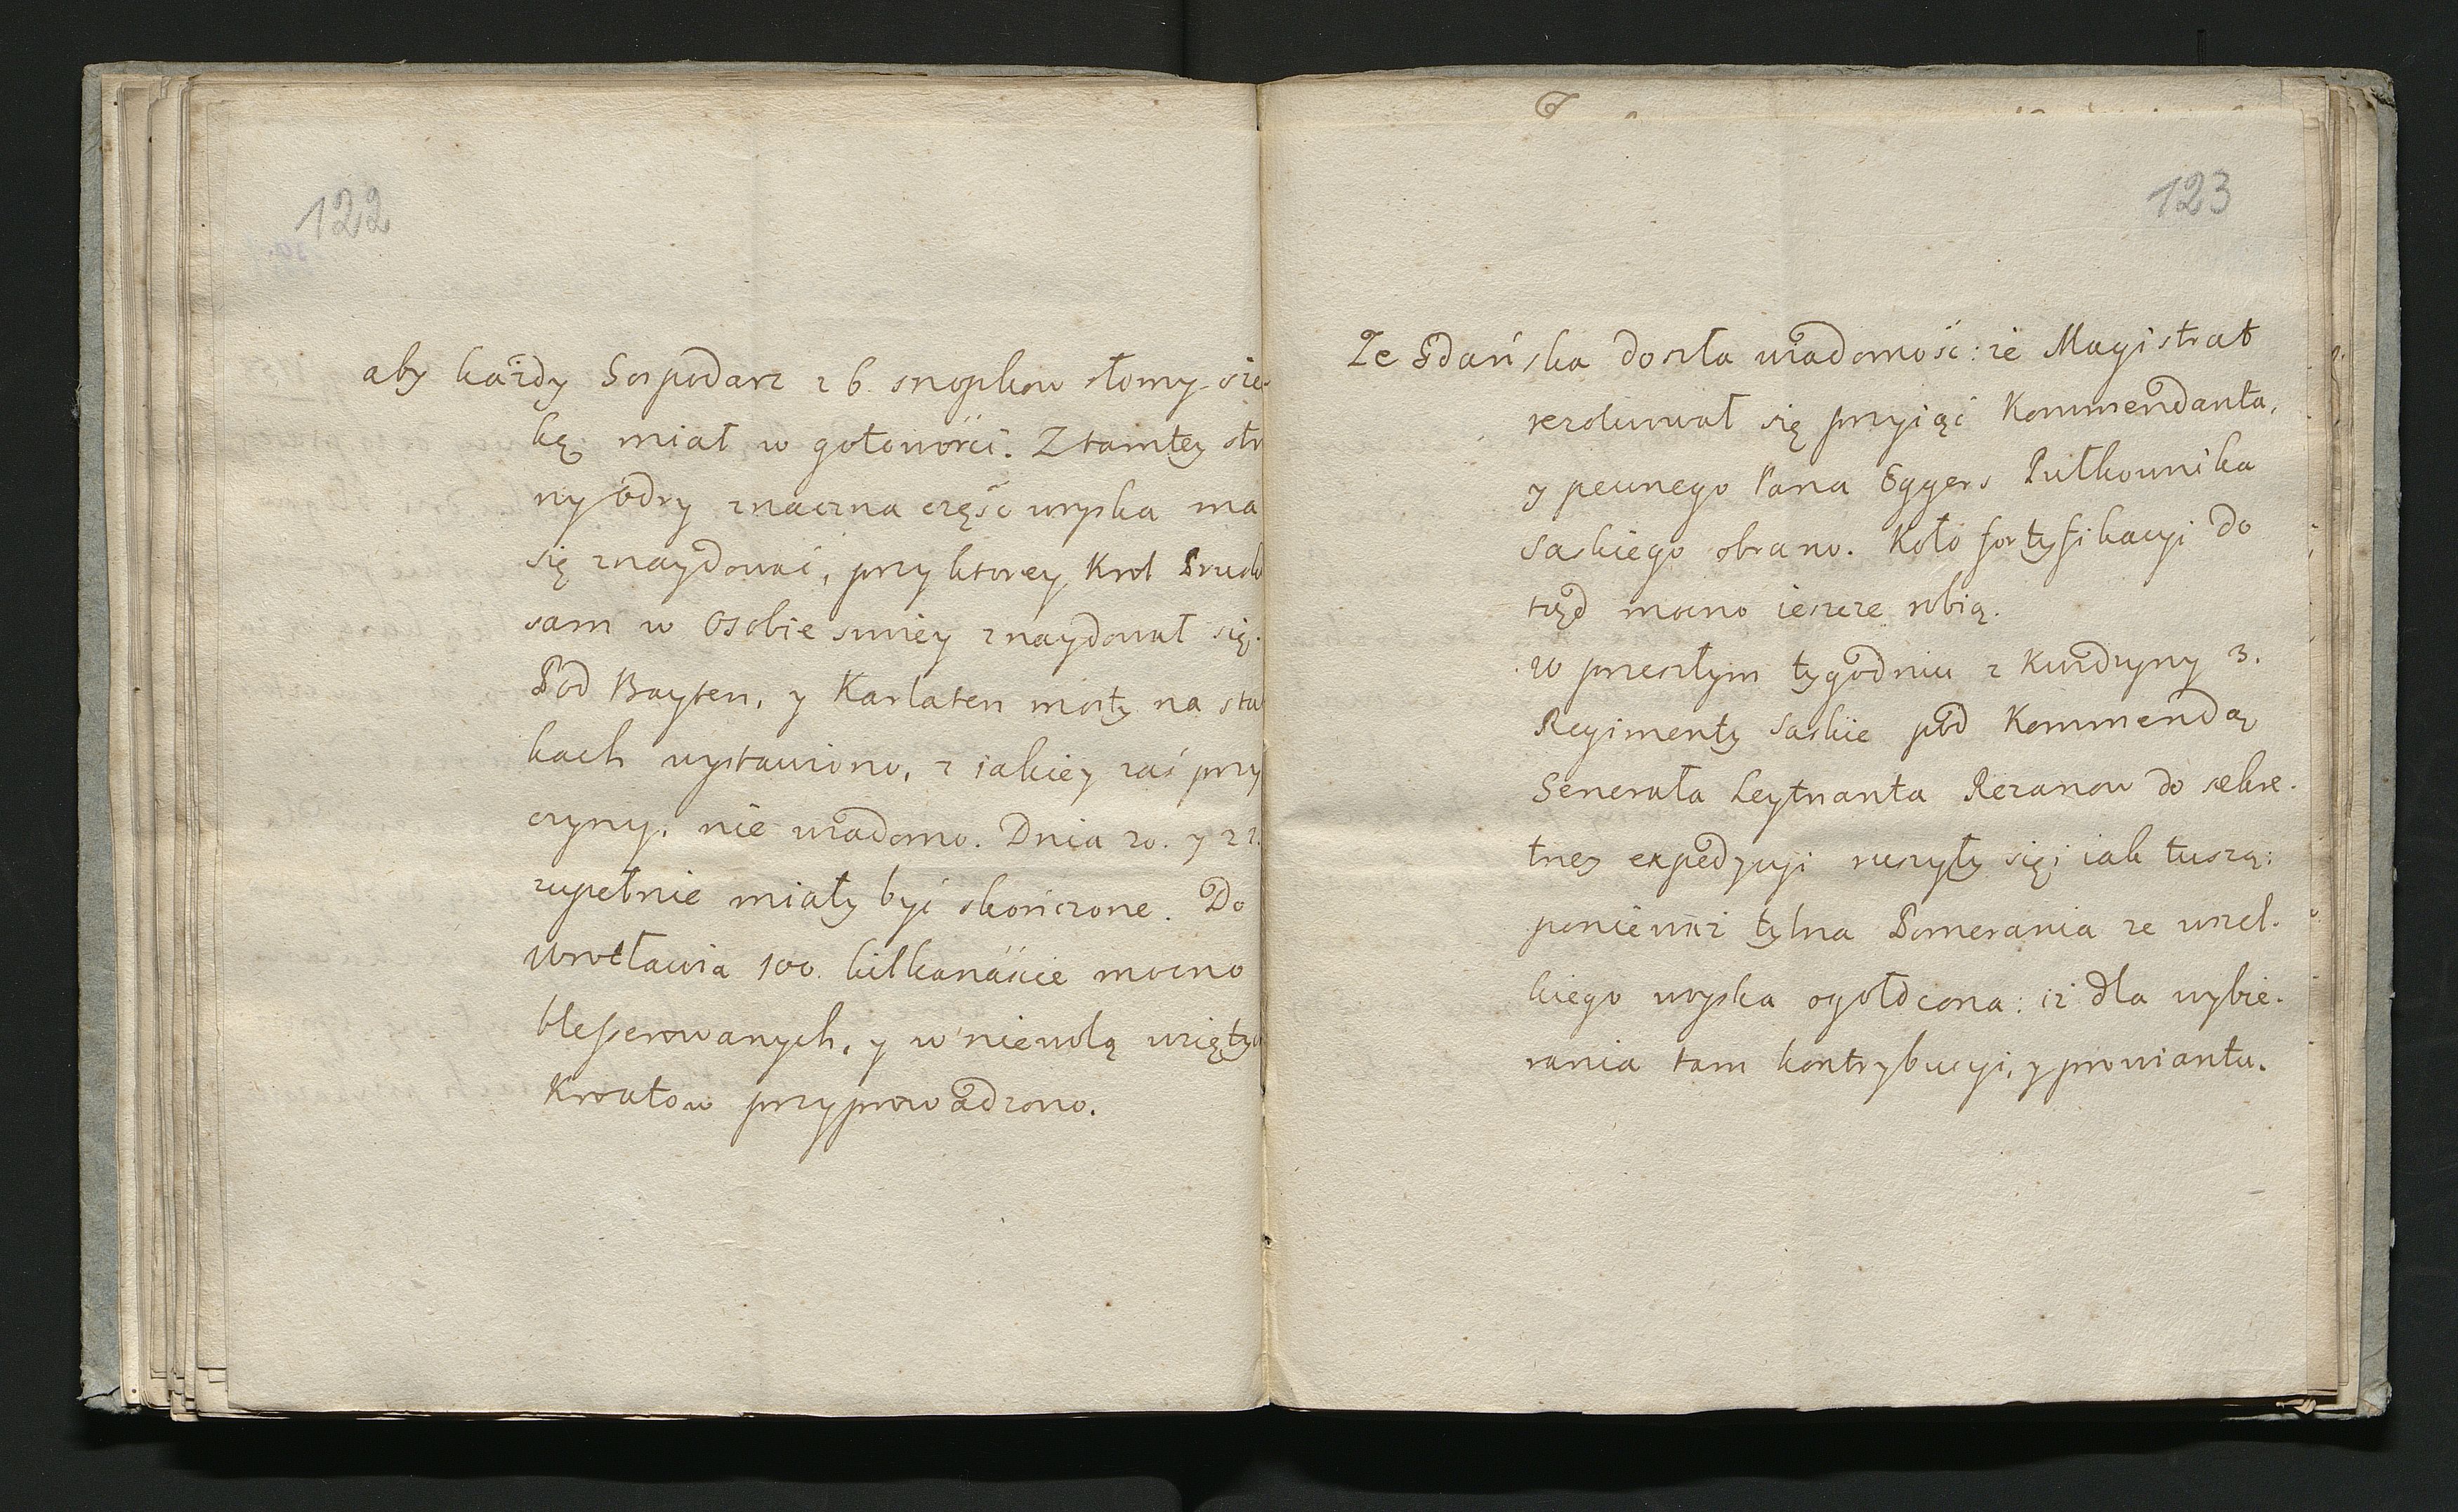 122
aby każdy Gospodarz z 6. snopkow słomy sie
kę miał w gotowości. Z tamtey str
ny Odry znaczna część woyska ma
się znaydować, przy ktorey Krol Prusk
sam w Osobie swiey znaydował się.
Pod Bayten, y Karlaten mosty na stat
kach wystawiono, z iakiey zaś przy
czyny, nie wiadomo. Dnia 20. y 21.
zupełnie miały być skończone. Do
Wrocławia 100. kilkanaście mocno
blesserowanych, y w niewolą wzięty
Kroatow przyprowadzono.
123
Ze Gdańska doszła wiadomość: że Magistrat
rezolwował się przyiąć Kommendanta,
y pewnego Pana Eggers Pułkownika
Saskiego obrano. Koło fortyfikacyi do
tąd mocno ieszcze robią.
w przeszłym tygodniu z Kwidzyny 3.
Regimenty Saskie pod Kommendą
Generała Leytnanta Rezanow do sekre-
tney expedycyi ruszyły się; iak tuszą:
ponieważ tylna Pomerania ze wszel-
kiego woyska ogołocona: iż dla wybie-
rania tam kontrybucyi, y prowiantu.